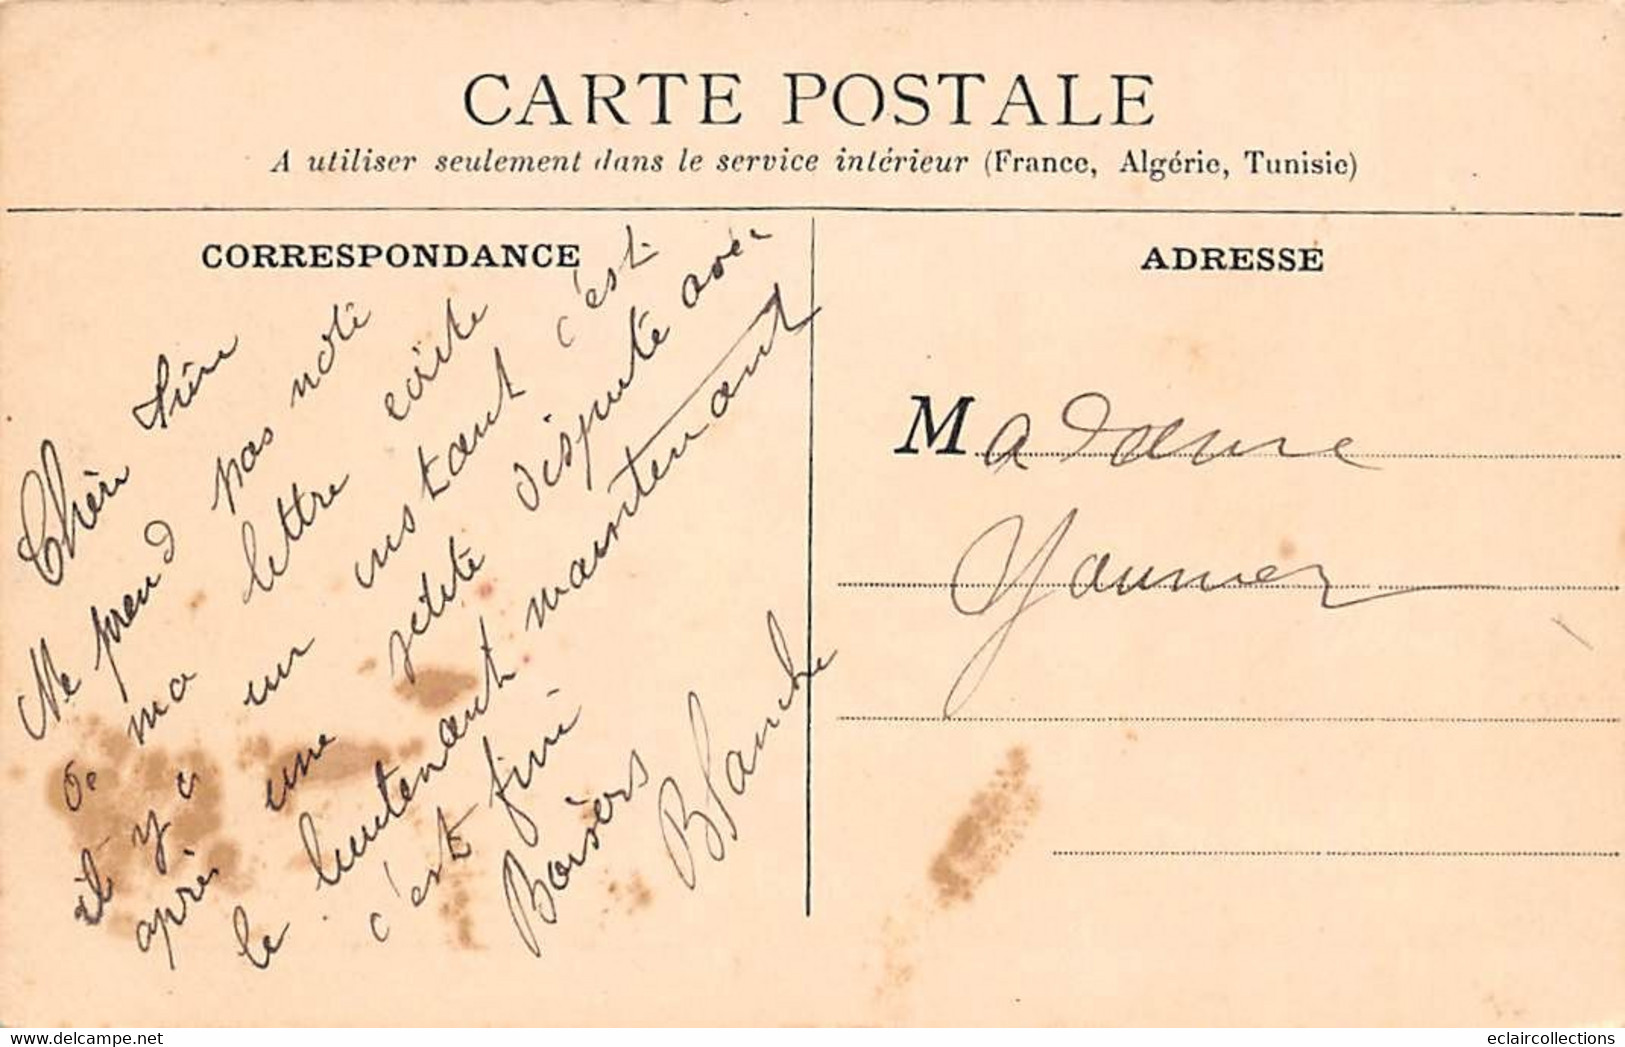 CARTE POSTALE
A utiliser seulement dans le service intérieur (France, Algérie, Tunisie)
CORRESPONDANCE
Chère
Ne prend pas note
de ma lettre écrite
il y a un instant c'est
après une petite dispute avec
le lieutenant maintenant
c'est fini
Baisers
Blanche
ADRESSE
Madame
eclaircollections